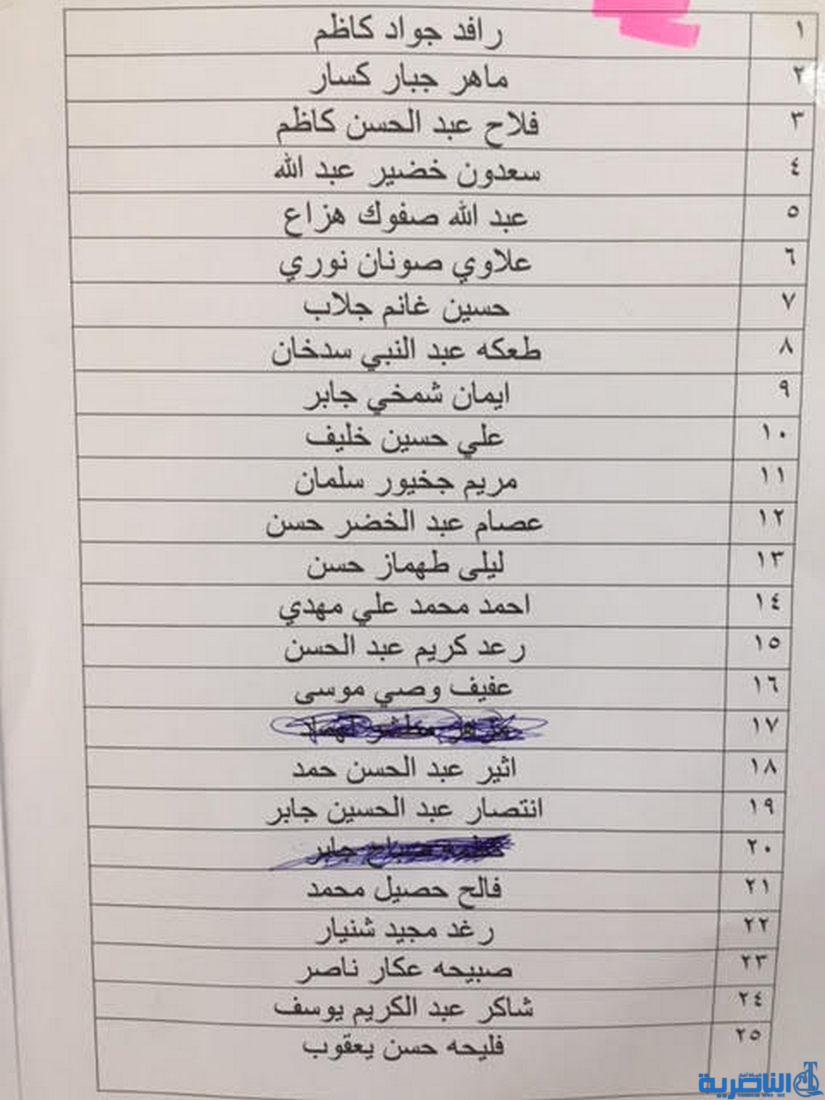 ١ رافد جواد كاظم
٢ ماهر جبار كسار
٣ فلاح عبد الحسن كاظم
٤ سعدون خضير عبد الله
٥ عبد الله صفوك هزاع
٦ علاوي صونان نوري
٧ حسين غانم جلاب
٨ طعكه عبد النبي سدخان
٩ ايمان شمخي جابر
١٠ علي حسين خليف
١١ مريم جخيور سلمان
١٢ عصام عبد الخضر حسن
١٣ ليلى طهماز حسن
١٤ احمد محمد علي مهدي
١٥ رعد كريم عبد الحسن
١٦ عفيف وصي موسى
١٧
١٨ اثير عبد الحسن حمد
١٩ انتصار عبد الحسين جابر
٢٠ جابر
٢١ فالح حصيل محمد
٢٢ رغد مجيد شنيار
٢٣ صبيحه عكار ناصر
٢٤ شاكر عبد الكريم يوسف
٢٥ فليحه حسن يعقوب
الناصرية